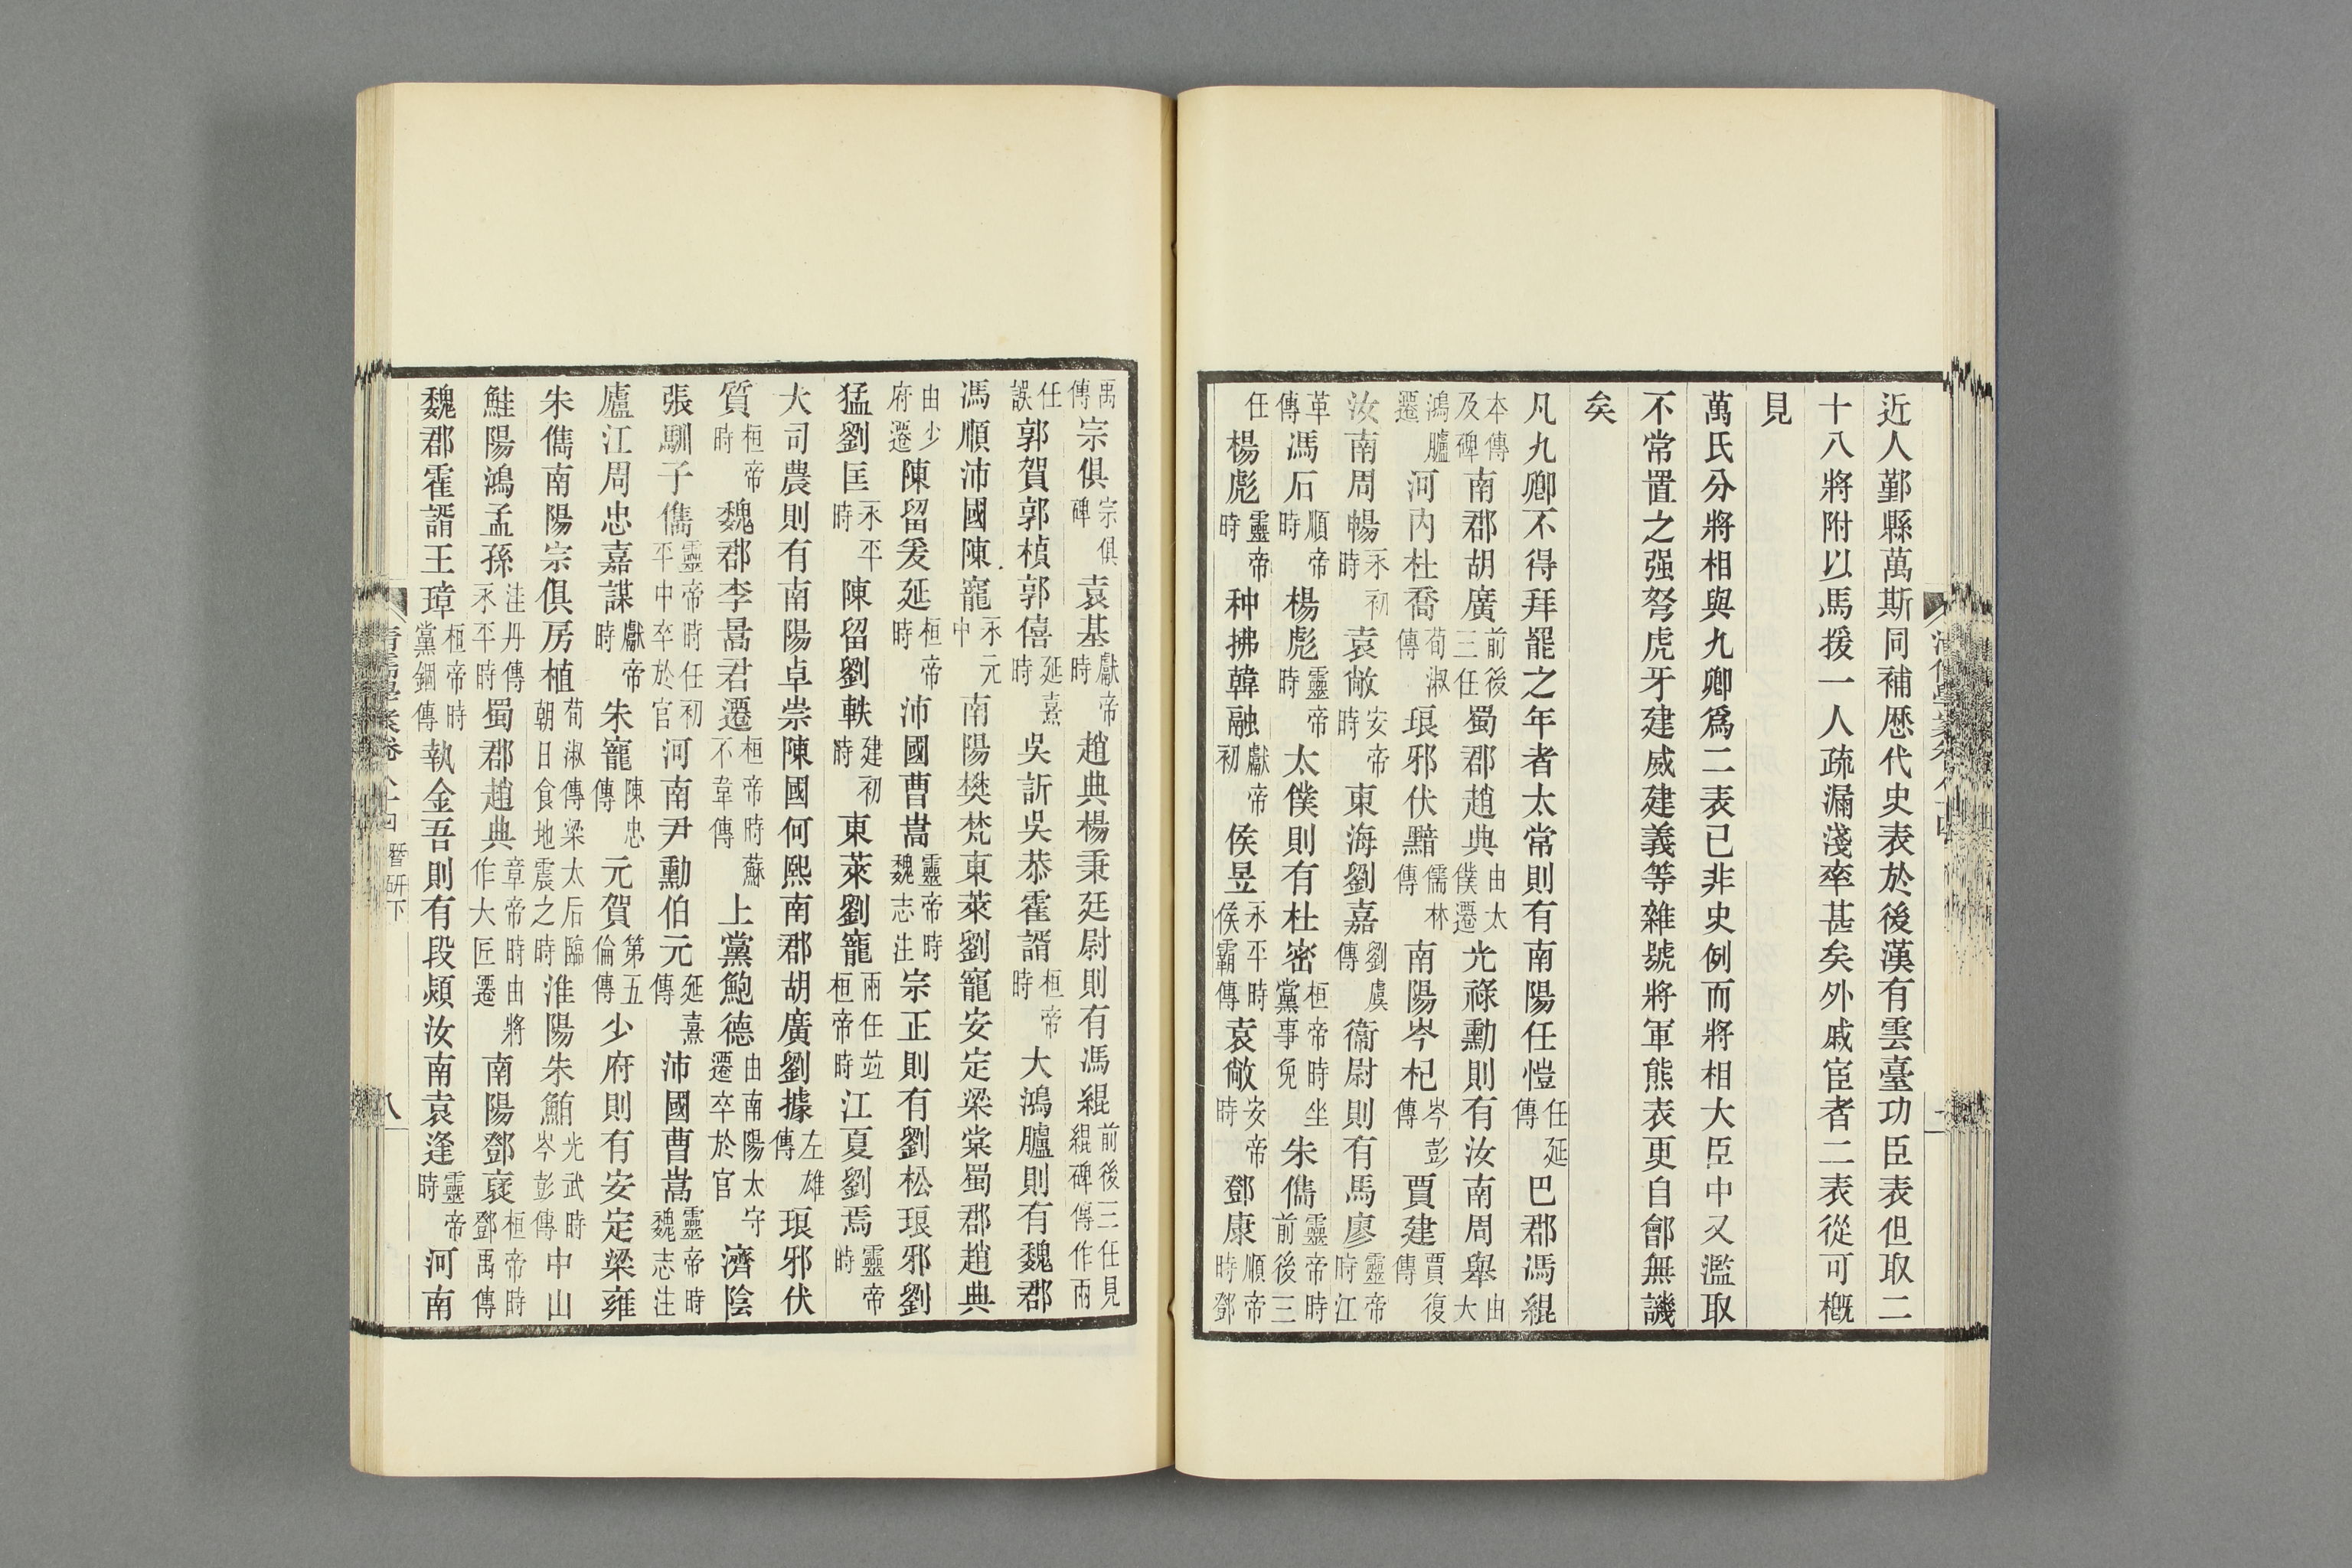 近人鄞縣萬斯同補歷代史表於後漢有雲臺功臣表但取二
十八將附以馬援一人疏漏淺率甚矣外戚宦者二表從可槪
見
萬氏分將相與九卿爲二表已非史例而將相大臣中又濫取
不常置之强弩虎牙建威建義等雜號將軍熊表更自鄶無譏
矣
凡九卿不得拜罷之年者太常則有南陽任愷任延傳巴郡馮緄
本傳及碑南郡胡廣前後三任蜀郡趙典由太僕遷光祿勳則有汝南周舉由大
鴻臚遷河內杜喬荀淑傳琅邪伏黯儒林傳南陽岑杞岑彭傳賈建賈復傳
汝南周暢永初時袁敞安帝時東海劉嘉劉虞傳衞尉則有馬廖靈帝時江
革傳馮石順帝時楊彪靈帝時太僕則有杜密桓帝時坐黨事免朱儁靈帝時前後三
任楊彪靈帝時种拂韓融獻帝初侯昱永平時侯霸傳袁敞安帝時鄧康順帝時鄧
禹傳宗俱宗俱碑袁基獻帝時趙典楊秉廷尉則有馮緄前後三任見緄碑傳作兩
任誤郭賀郭楨郭僖延熹時吳訢吳恭霍諝桓帝時大鴻臚則有魏郡
馮順沛國陳寵永元中南陽樊梵東萊劉寵安定梁棠蜀郡趙典
由少府遷陳留爰延桓帝時沛國曹嵩靈帝時魏志注宗正則有劉松琅邪劉
猛劉匡永平時陳留劉軼建初時東萊劉寵兩任竝桓帝時江夏劉焉靈帝時
大司農則有南陽卓崇陳國何熙南郡胡廣劉據左雄傳琅邪伏
質桓帝時魏郡李暠君遷桓帝時蘇不韋傳上黨鮑德由南陽太守遷卒於官濟陰
張馴子儁靈帝時任初平中卒於官河南尹勳伯元延熹傳沛國曹嵩靈帝時魏志注
廬江周忠嘉謀獻帝時朱寵陳忠傳元賀第五倫傳少府則有安定梁雍
朱儁南陽宗俱房植荀淑傳梁太后臨朝日食地震之時淮陽朱鮪光武時岑彭傳中山
鮭陽鴻孟孫洼丹傳永平時蜀郡趙典章帝時由將作大匠遷南陽鄧襃桓帝時鄧禹傳
魏郡霍諝王璋桓帝時黨錮傳執金吾則有段熲汝南袁逢靈帝時河南
清儒學案卷八十四 曁研下 八